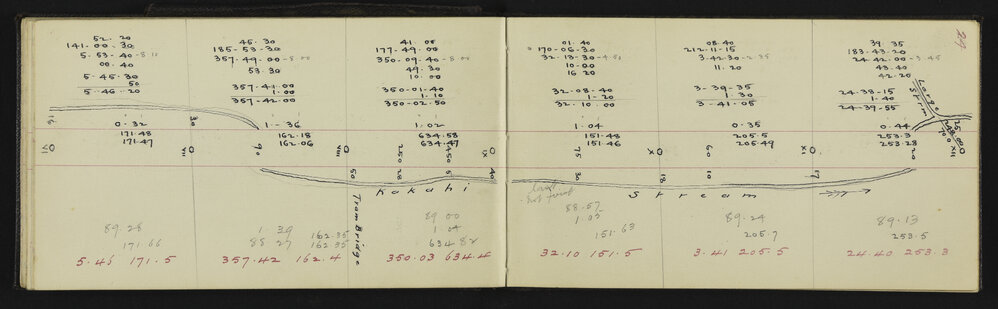 29
52. 20
141-00-30
5-53-40-8.10
00-40
5-45-30
50
5-46-20
45.30
185-53-30
357-49-00-8.00
53.30
357-41-00
1.00
357-42-00
41.00
177-49-00
350-09-40-8.00
49.30
10.00
350-01-40
1.10
350-02-50
01.40
170-06-30
32-13-30-4.50
10-00
16 20
32-08-40
1-20
32-10.00
08.40
212-11-15
3-42-30-2.35
11.20
3-39-35
1.30
3-41-05
39.35
183-43-20
24-42-00-3.45
43-40
42-20
24-38-15
1-40
24-39-55
Large
Strm
16
VI
0-32
171.48
171.47
30
VII
1-36
162.18
162.06
90
VIII
1.02
634.58
634.47
250
450
IX
1-04
151.48
151.46
75
X
0-35
205.5
205.49
60
10
XI
0-44
253.3
253.28
20
25
XII
50
28
5
40
30
18
17
Kakahi Stream
Tram Bridge
89.28
171.66
1-39
88.27
162.35
162.35
89.00
1.04
634.82
88.57
1.03
151.63
89.24
205.7
89.13
253.5
5.45 171.5
357.42 162.4
350.03 634.4
32.10 151.5
3.41 205.5
24.40 253.3